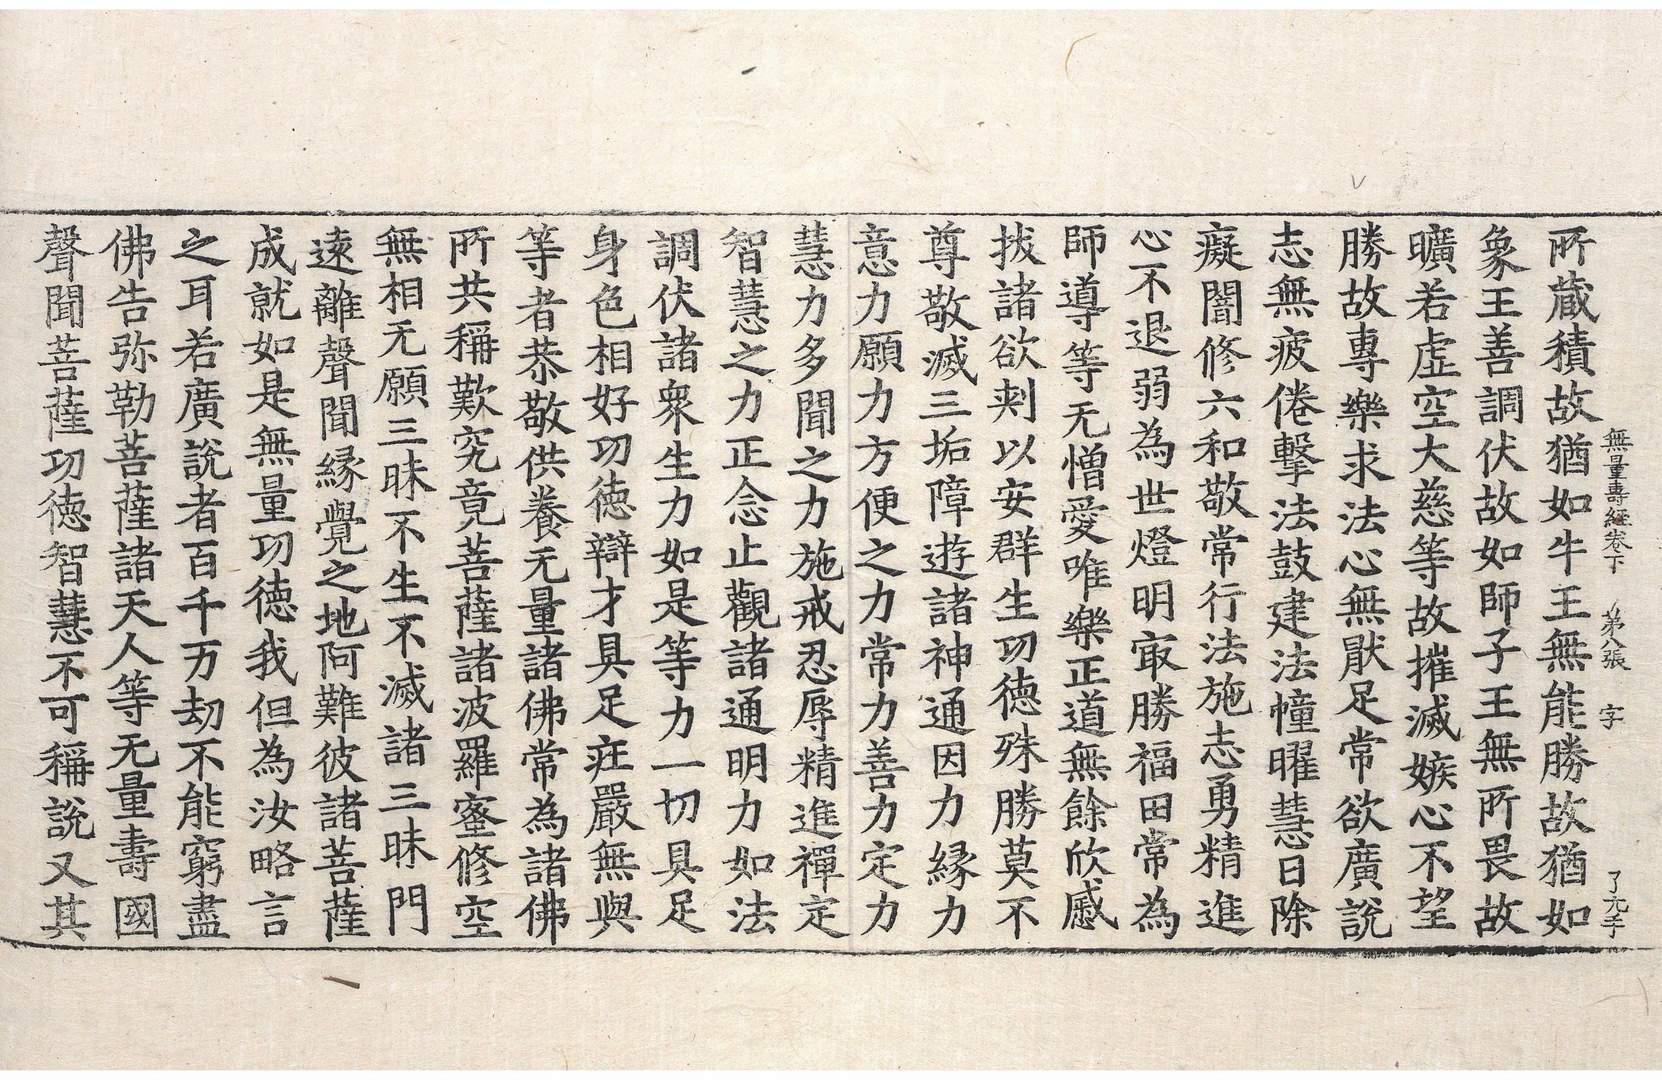 無量壽經卷下　第八張　字　了元手
所蔵積故猶如牛王無能勝故猶如
象王善調伏故如師子王無所畏故
曠若虛空大慈等故摧滅嫉心不望
勝故專樂求法心無厭足常欲廣說
志無疲倦擊法鼓建法幢曜慧日除
癡闇修六和敬常行法施志勇精進
心不退弱為世燈明㝡勝福田常為
師導等无憎愛唯樂正道無餘欣慼
拔諸欲刾以安群生功德殊勝莫不
尊敬滅三垢障遊諸神通因力緣力
意力願力方便之力常力善力定力
慧力多聞之力施戒忍辱精進禪定
智慧之力正念止觀諸通明力如法
調伏諸衆生力如是等力一切具足
身色相好功德辯才具足莊嚴無與
等者恭敬供養无量諸佛常為諸佛
所共稱歎究竟菩薩諸波羅蜜修空
無相无願三昧不生不滅諸三昧門
遠離聲聞緣覺之地阿難彼諸菩薩
成就如是無量功德我但為汝略言
之耳若廣說者百千万劫不能窮盡
佛告弥勒菩薩諸天人等无量壽國
聲聞菩薩功德智慧不可稱說又其